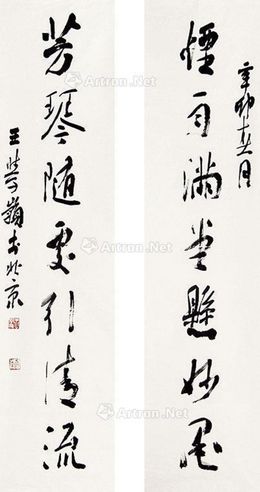 辛卯月
煙满堂懸妙墨
芳琴随處引清流
王學嶺书北京
Artron.Net
Artron.Net
Artron.Net
Artron.Net